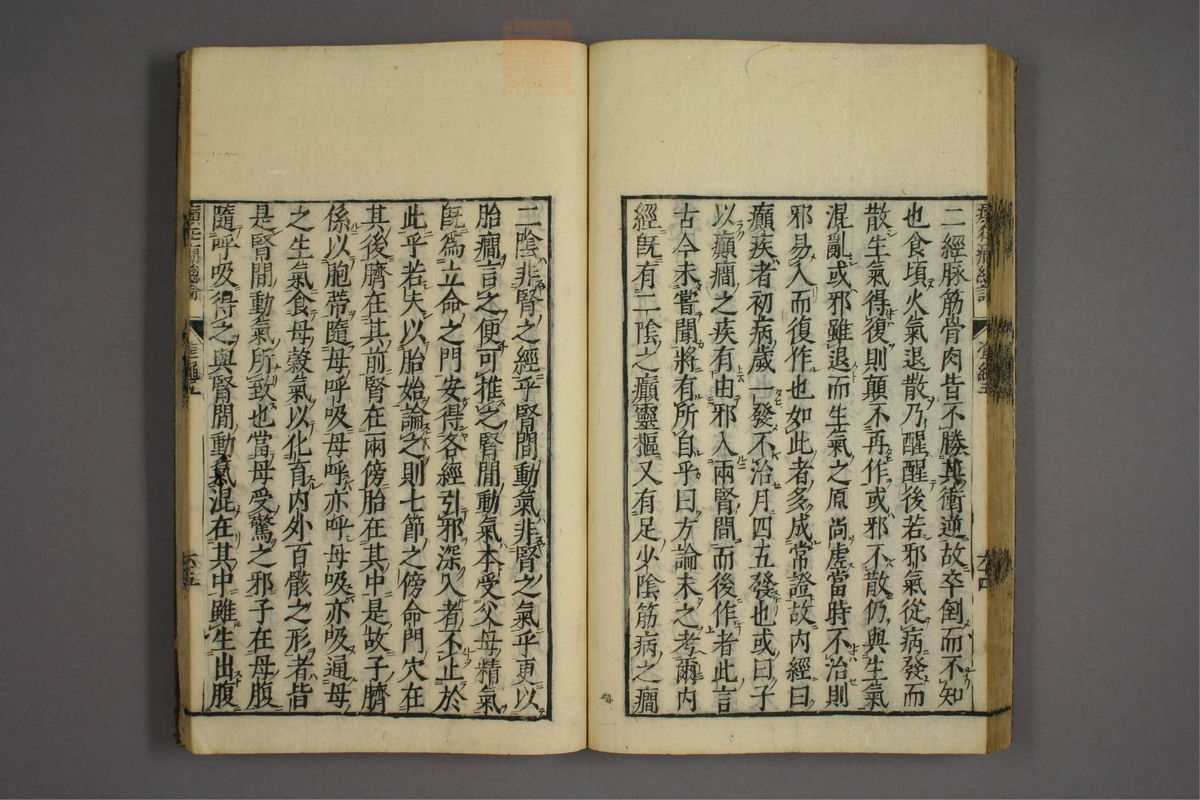 二經脉筋骨肉皆不勝其衝逆故卒倒而不知
也食頃火氣退散乃醒醒後若邪氣從病發而
散生氣得復則顛不再作或邪不散仍與生氣
混亂或邪雖退而生氣之原尚虛當時不治則
邪易入而復作也如此者多成常證故内經曰
癲疾者初病歲一發不治月四五發也或曰子
以癲癇之疾有由邪入兩腎間而後作者此言
古今未嘗聞將有所自乎曰方論未之考爾内
經既有二陰之癲靈樞又有足少陰筋病之癇
二陰非腎之經乎腎間動氣非腎之氣乎更以
胎癇言之便可推之腎間動氣本受父母精氣
既爲立命之門安得各經引邪深入者不止於
此乎若夫以胎始論之則七節之傍命門穴在
其後臍在其前腎在兩傍胎在其中是故子臍
係以胞蔕隨母呼吸母呼亦呼母吸亦吸通母
之生氣食母穀氣以化育内外百骸之形者皆
是腎間動氣所致也當母受驚之邪子在母腹
隨呼吸得之與腎間動氣混在其中雖生出腹